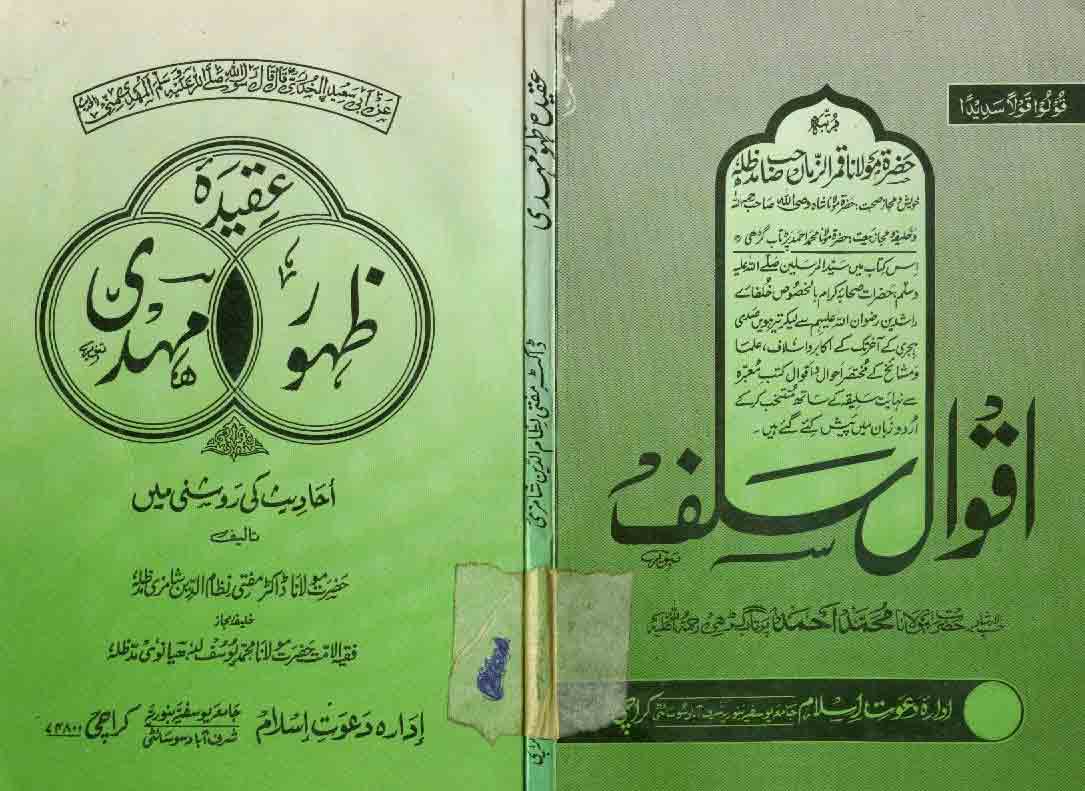 قُوۡلُوۡا قَوۡلاً سَدِیۡدًا
مرتبہ
حضرۃ مولانا قمر الزماں صاحب مدظلہ
خویش و مجاز صحبت: حضرۃ مولانا شاہ وصی اللہ صاحب رحمہ اللہ
و خلیفہ و مجاز بیعت: حضرۃ مولانا محمد احمد پرتاب گڑھی رح
اس کتاب میں سید المرسلین صلے اللہ علیہ
وسلم، حضرات صحابہ کرام بالخصوص خلفائے
راشدین رضوان اللہ علیہم سے لیکر تیرہویں صدی
ہجری کے آخر تک کے اکابر و اسلاف، علما
و مشائخ کے مختصر احوال و اقوال کتب معتبرہ
سے نہایت سلیقہ کے ساتھ منتخب کرکے
اردو زبان میں پیش کئے گئے ہیں۔
اقوال سلف
حضرت مولانا محمد احمد پرتاب گڑھی رحمۃ اللہ علیہ
ادارہ دعوت اسلام جامعہ یوسفیہ بنوریہ شرف آباد سوسائٹی کراچی
عقیدہ ظہور مہدی
ڈاکٹر مفتی نظام الدین شامزی
عن ابی سعید الخدری قال قال رسول اللہ صلے اللہ علیہ وسلم المہدی منی
عقیدۂ
ظہور
مہدی
احادیث کی روشنی میں
تالیف
حضرت مولانا ڈاکٹر مفتی نظام الدین شامزی مدظلہ
خلیفہ مجاز
فقیہ الامت حضرت مولانا محمد یوسف لدھیانوی مدظلہ
ادارہ دعوت اسلام جامعہ یوسفیہ بنوریہ شرف آباد سوسائٹی کراچی ۷۴۸۰۰